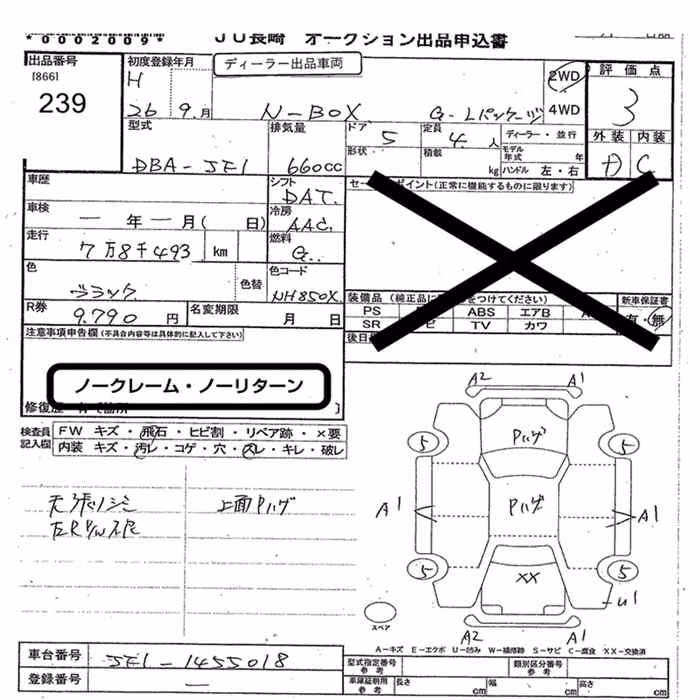 *0002009* JU長崎 オークション出品申込書
出品番号 初度登録年月 ディーラー出品車両 評価点
[866] H 2WD
239 26 9.月 N-BOX G-Lパッケージ 4WD 3
型式 排気量 ドア 5 定員 4 人 ディーラー・並行 外装 内装
形状 積載 モデル年式 年
DBA-JF1 660cc kg ハンドル 左・右 A C
車歴 シフト DAT. セー ポイント(正常に機能するものに限ります)
車検 一 年 一 月( 日) 冷房 AAC.
走行 7万8千493 km 燃料 G.
色 ブラック 色替 色コード NH850X
装備品(純正品に をつけてください) 新車保証書
PS ABS エアB A 有・無
SR ビ TV カワ
R券 9.790 円 名変期限 月 日 後日
注意事項申告欄(不具合内容等は具体的に記入して下さい)
ノークレーム・ノーリターン
修復歴
検査員記入欄 FW キズ・飛石・ヒビ割・リペア跡・×要
内装 キズ・汚レ・コゲ・穴・スレ・キレ・破レ
天張りシミ 上面Pハゲ
A2 A1
Pハゲ
5 5
A1 Pハゲ A1
5 5
XX
U1
A2 A1
スペア
A-キズ E-エクボ U-凹み W-補修跡 S-サビ C-腐食 XX-交換済
車台番号 JF1-1455018 型式指定番号 参考 類別区分番号 参考
登録番号 一 車庫証明用 参考 長さ cm 幅 cm 高さ cm